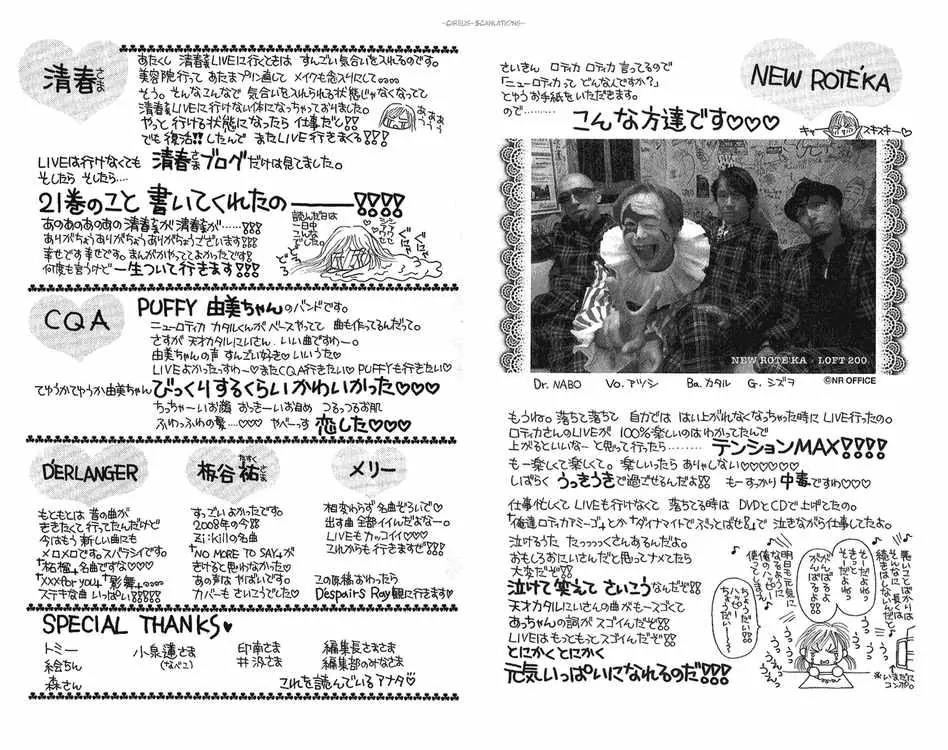 -CIREUS-SCANLATIONS-
NEW ROTE'KA
さいきん ロティカ ロティカ 言ってるので
「ニューロティカって どんなんですか?」
とゆうお手紙をいただきます。
ので………こんな方達です♡♡♡
キャー スキスキー♡
NEW ROTE'KA · LOFT 200
Dr. NABO Vo. アツシ Ba. カタル G. シズヲ ©NR OFFICE
もうね。落ちて落ちて 自分では はい上がれなくなっちゃった時に LIVE行ったの。
ロティカさんのLIVEが 100%楽しいのはわかってたんで
上がるといいなーと思って行ったら……… テンションMAX!!!!
もー楽しくて楽しくて。楽しいったら ありゃしない♡♡♡♡♡♡
しばらく うっきうきで過ごせるんだよ!! もーすっかり中毒ですわ♡♡♡
仕事忙しくて LIVEも行けなくて 落ちてる時は DVDとCDで上げてたの。
「俺達ロティカアミーゴ」とか「ダイナマイトでぶっとばせ!」で 泣きながら仕事してたよ。
泣けるうた たっっっくさんあるんだよ。
おもしろおにいさんだと思ってナメてたら
大変だぞ!!
泣けて 笑えて さいこうなんだぞ!!
天才カタルにいさんの曲がもースゴくて
あっちゃんの詞が スゴイんだぞ!!
LIVEはもっともっとスゴイんだぞ!!
とにかくとにかく
元気いっぱいになれるのだ!!!
悪いことばかりは
そんなに長くは
続きはしないんだと♪
そーだよねっ
きっと
そーだよねっ
がんばるよ
がんばるよ
明日も元気に
なるように
俺のハッピー
使ってしまえ♪
ちょうだい!!
ハッピー
ちょうだいーー
うっ
うっ
※いまだに
コンポ。
清春さま
あたくし 清春さまLIVEに行くときは すんごい気合いを入れるのです。
美容院行って あたまプリン直して メイクも念入りにして○○○○
そう。そんなこんなで 気合いを入れられる状態じゃなくなってて
清春さまLIVEに行けない体になっちゃっておりました。
やっと行ける状態になったら 仕事だと!!
でも 復活!! したんで またLIVE行くまくる!!!
LIVEは行けなくても 清春さまブログだけは見てました。
そしたら そしたら….
21巻のコト 書いてくれたの———!!!!
あのあのあのあの 清春さまが 清春さまが……!!!
ありがちょうありがちょうありがちょうございます!!!
幸せです幸せです。まんがかやっててよかったです!
何度も言うけど 一生ついて行きます!!!
読んだ日は
一日中
こんな
でした。
CQA
PUFFY 由美ちゃんのバンドです。
ニューロティカ カタルくんが ベースやってて 曲も作ってるんだって。
さすが 天才カタルにいさん。いい曲ですわー。
由美ちゃんの声 すんごい好き♡ いいうた♡
LIVEよかったっすわー♡ またCQA行きたい♡ PUFFYも行きたい♡
てゆうかてゆうか由美ちゃん びっくりするくらい かわいかった♡♡♡
ちっちゃーいお顔 おっきーいお目め つるつるお肌
ふわっふわの髪….♡♡♡ やべーっす 恋した♡♡♡
D'ERLANGER
もともとは 昔の曲が
ききたくて行ってたんだけど
今はもう 新しい曲にも
メロメロです。スバラシイです。
「柘榴」名曲ですな♡♡♡
「XXX for you」「影舞」○○○○
ステキな曲 いっぱい!!!!!
板谷祐さま
すっごい よかったです。
2008年の今!!
Zi:killの名曲
「NO MORE TO SAY」が
きけると思わなかった♡
あの声は やばいです。
カバーも さいこうでした♡
メリー
相変わらず 名曲ぞろいで♡
出す曲 全部イイんだよなー。
LIVEもカッコイイ♡♡♡
これからも行きますぜ!!!
この原稿おわったら
Despairs Ray観に行きます♡
SPECIAL THANKS♥
トミー 小泉蓮さま 印南さま 編集長さまさま
絵ちん (なべユ) 井汲さま 編集部のみなさま
森さん これを読んでいるアナタ